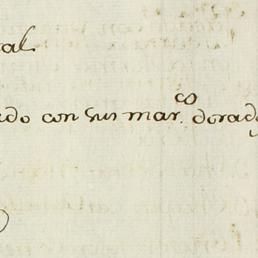 al.
do con sus mar.cos dorad